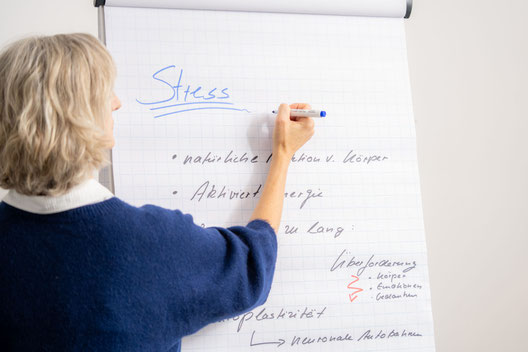 Stress
• natürliche v. Körper
• Aktiviert
zu lang:
Überforderung
• Körper
• Emotionen
• Gedanken
neuronale Autobahnen